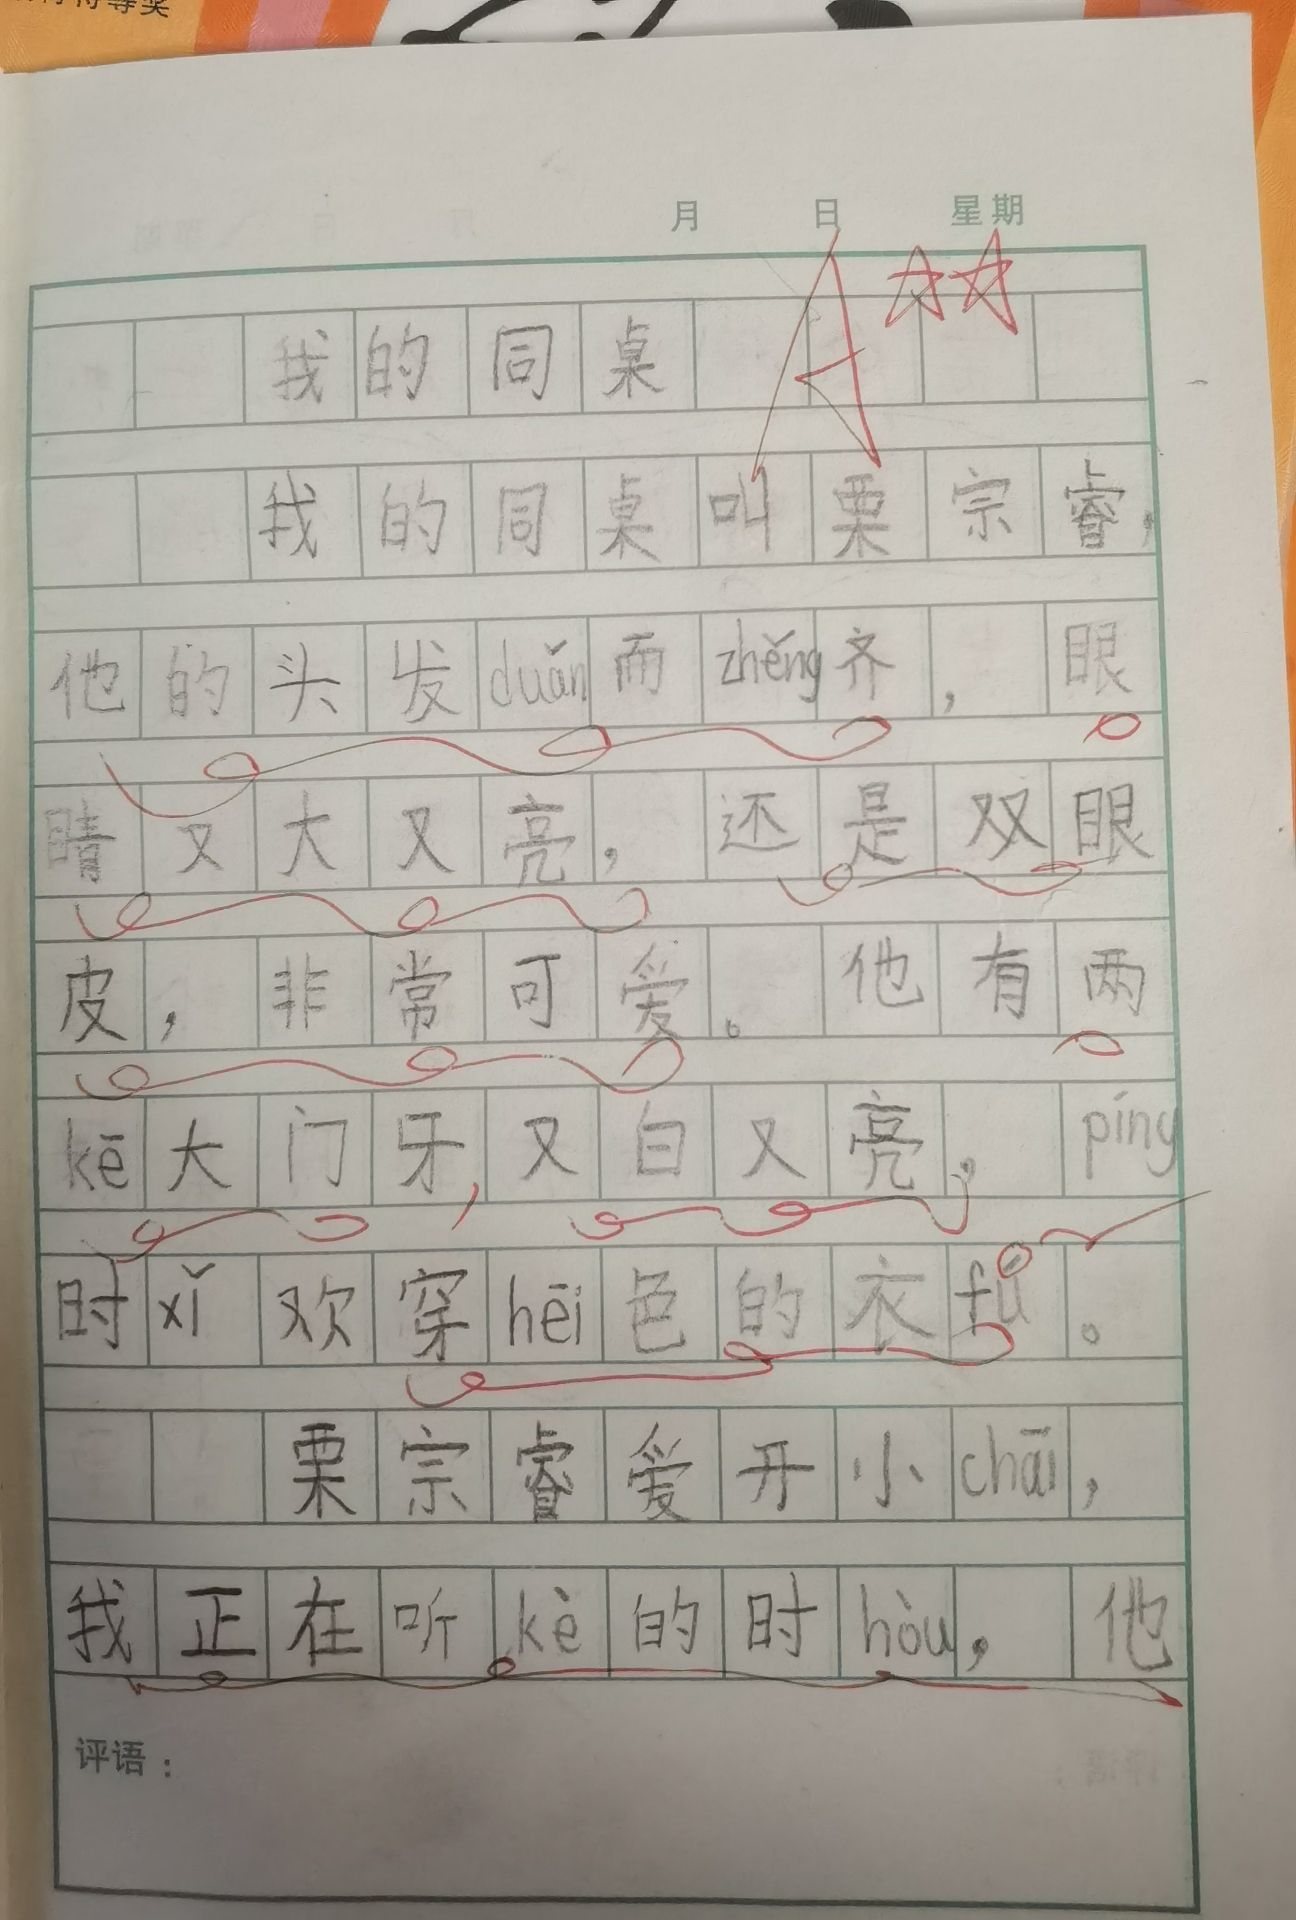 特等奖
月 日 星期
A☆☆
我的同桌
我的同桌叫栗宗睿,
他的头发duǎn而zhěng齐,眼
睛又大又亮,还是双眼
皮,非常可爱。他有两
kē大门牙,又白又亮,píng
时xǐ欢穿hēi色的衣fú。
栗宗睿爱开小chāi,
我正在听kè的时hòu,他
评语: